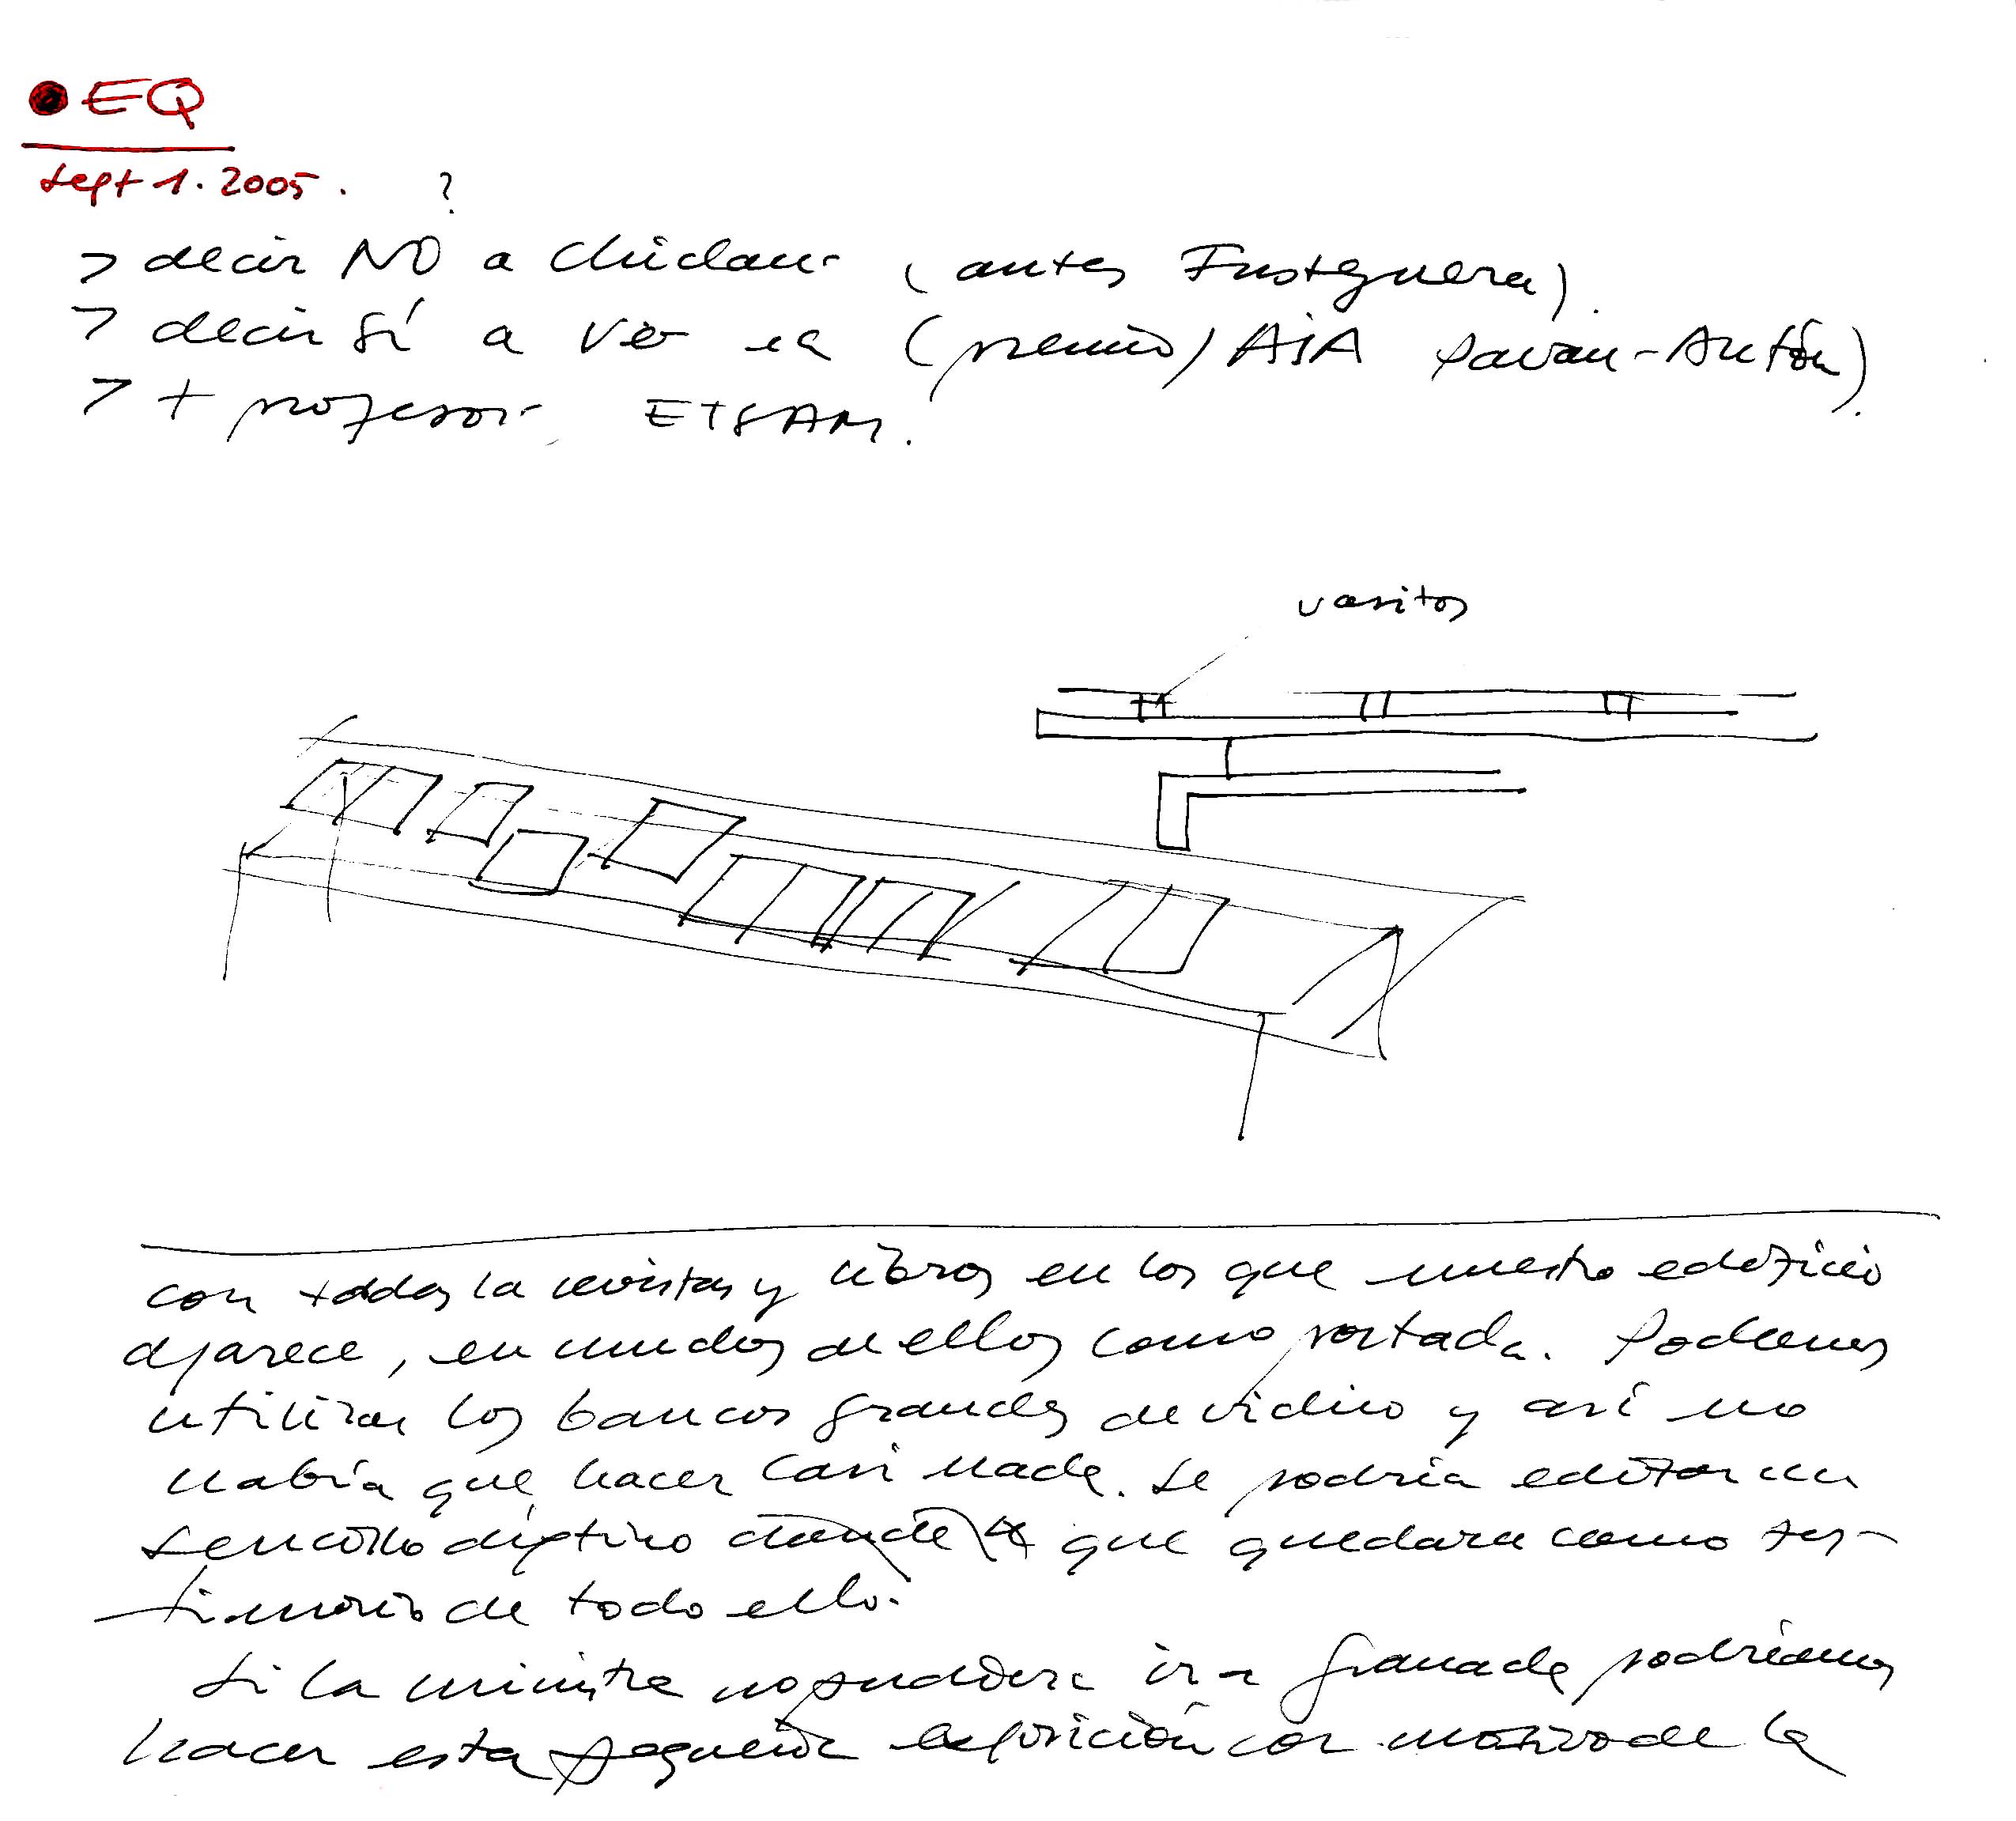 EQ
sept 1. 2005.
?
> decir NO a Chiclan (antes Fusteguera).
> decir Sí a (premio) AIA Pavan-Antón).
> + profesor ETSAM.
vasitos
con todas la revistas y libros en los que nuestro edificio
aparece, en muchos de ellos como portada. Podemos
utilizar los bancos grandes de vidrio y así no
habría que hacer casi nada. Se podría editar un
sencillo díptico donde que quedara como tes-
timonio de todo ello.
Si la ministra no pudiera ir a Granada podríamos
hacer esta pequeña exposición con motivo de la